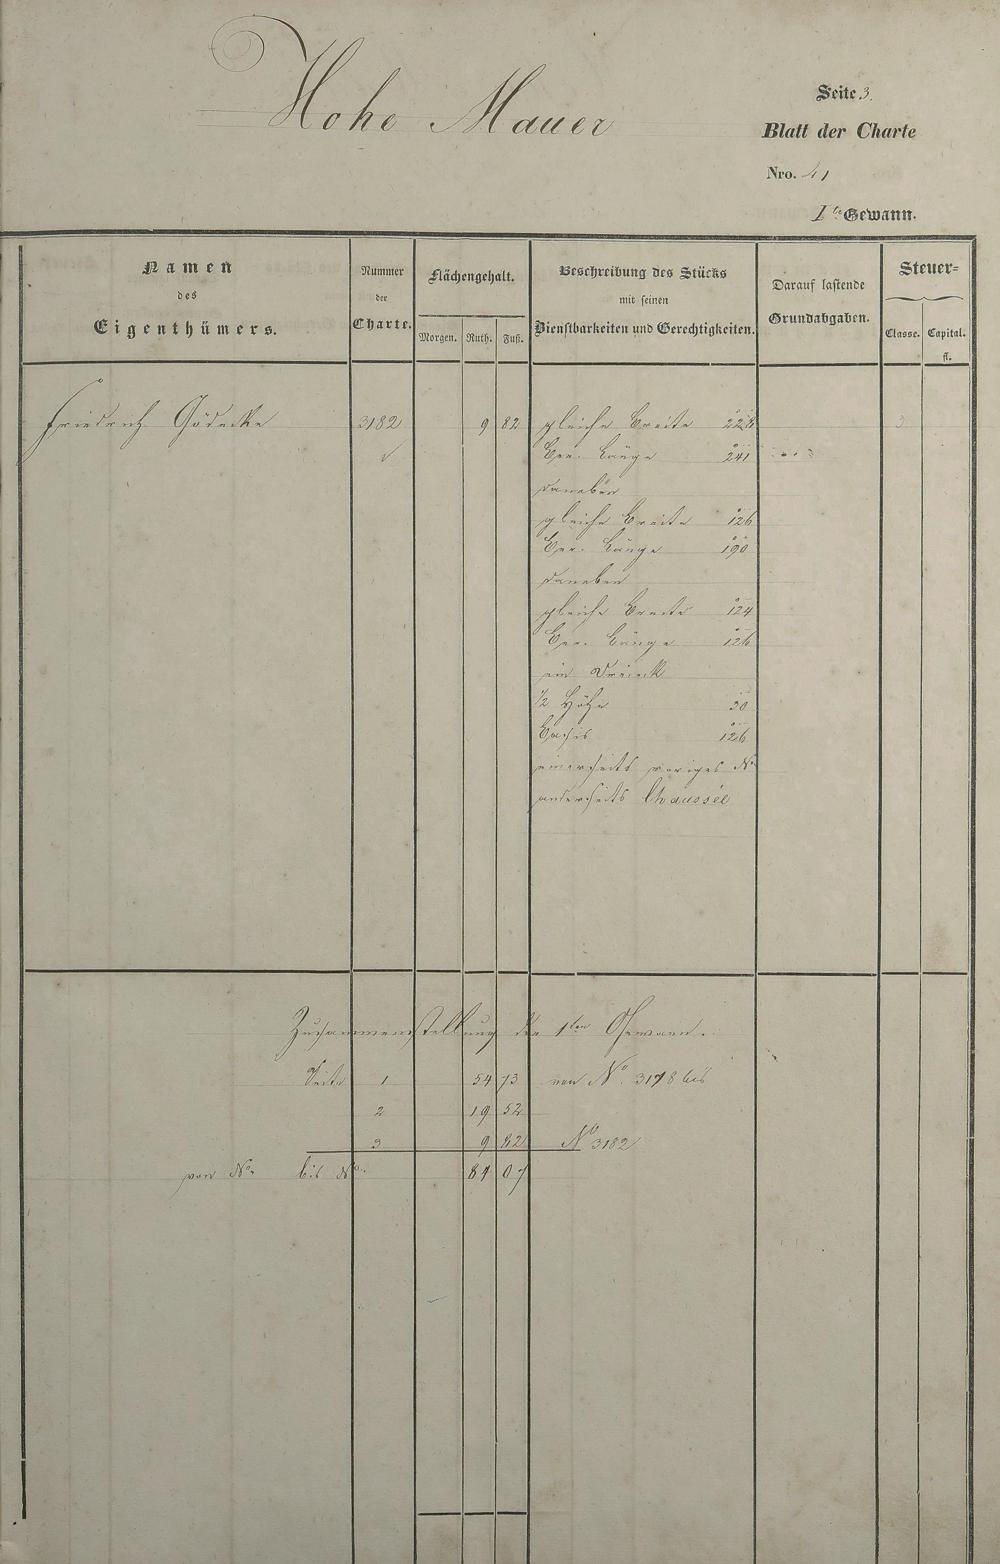 Hohe Mauer
Seite 3.
Blatt der Charte
Nro. 41
1te Gewann.
Namen des Eigenthümers.
Nummer der Charte.
Flächengehalt.
Morgen. Ruth. Fuß.
Beschreibung des Stücks mit seinen Dienstbarkeiten und Gerechtigkeiten.
Darauf lastende Grundabgaben.
Steuer=
Classe. Capital. fl.
Friedrich Gödecke 3182 9 82 gleiche Breite 228 3
Ber. Länge 241
daneben
gleiche Breite 126
Ber. Länge 190
daneben
gleiche Breite 124
Ber. Länge 126
ein Dreieck
1/2 Höhe 30
Basis 126
einerseits voriges No
anderseits Chaussée
Zusammenstellung der 1ten Gewann.
Seite 1 54 73 von No. 3178 bis
2 19 52
3 9 82 No 3182
von No. bis No. 84 07